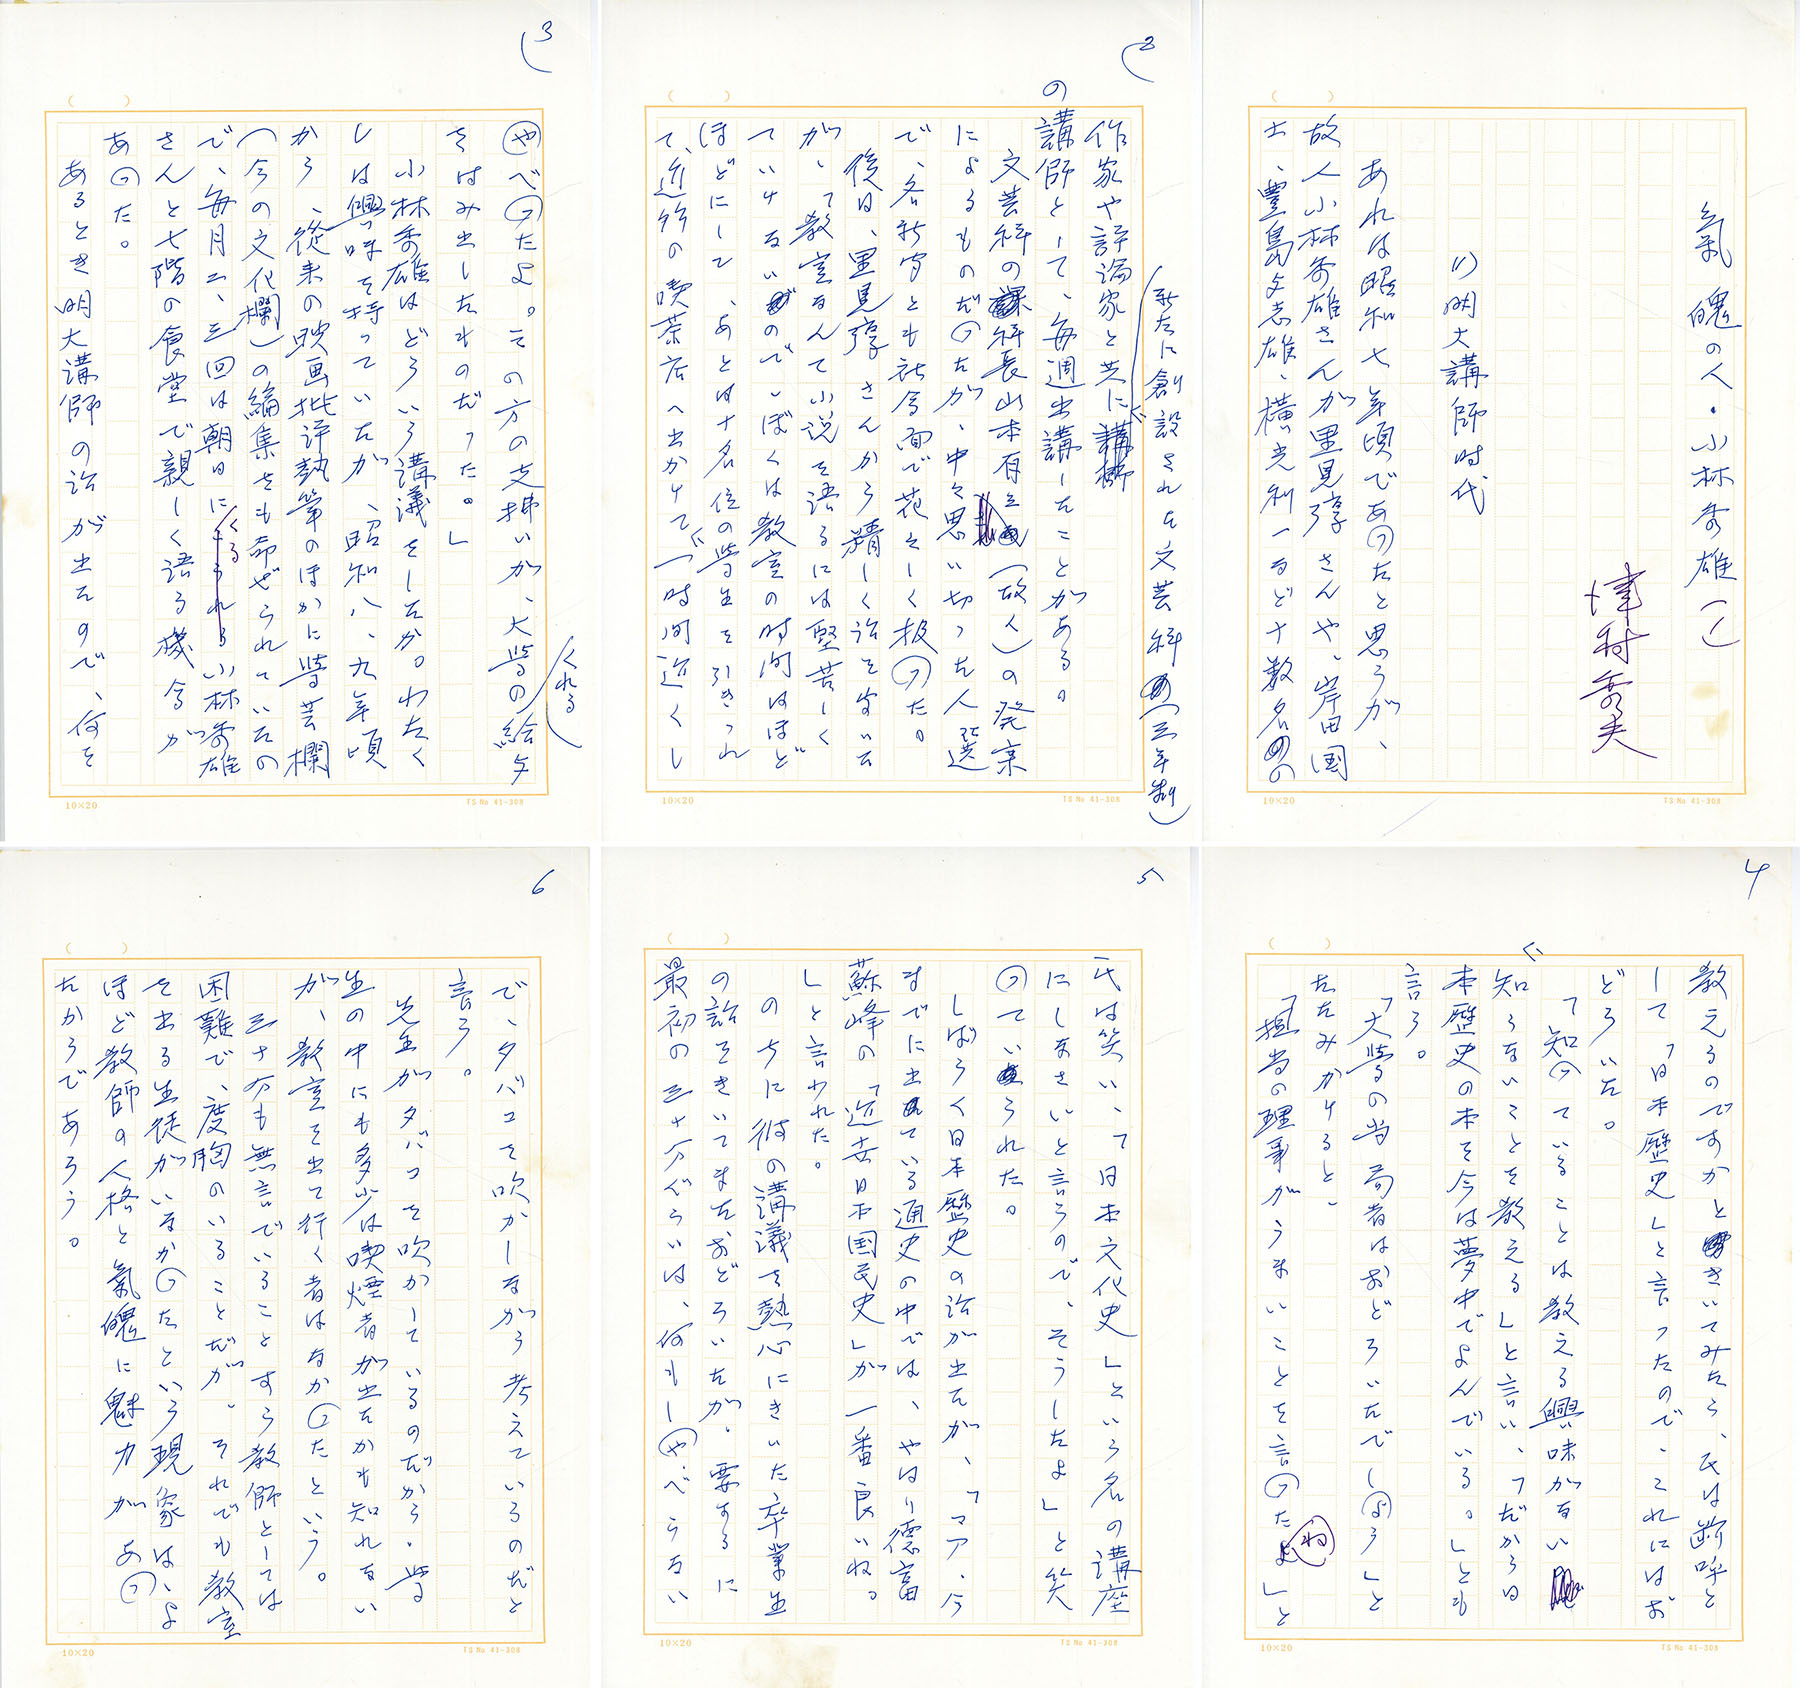 氣魄の人・小林秀雄(一)
津村秀夫
(1)明大講師時代
あれは昭和七年頃であったと思うが、
故人小林秀雄さんが里見弴さんや、岸田国
士、豊島与志雄、横光利一など十数名の
10×20
TS No 41-308
2
(新たに創設された文芸科(三年制)
作家や評論家と共に
の講師として、毎週出講したことがある。
文芸科の科長山本有三(故人)の発案
によるものだったが、中々思い切った人選
で、名称宵とも社会面で花々しく扱った。
後日、里見弴さんから精しく話を聞いた
が、「教室なんて小説を語るには堅苦しく
ていけないのでぼくは教室の時間はほど
ほどにして、あとは十名位の学生を引きつれ
て、近所の喫茶店へ出かけて一時間近くし
10×20
TS No 41-308
3
(くれる)
やべったよ。その方の支拂いが、大学の給与
をはみ出したものだった。」
小林秀雄はどういう講議をしたか。わたく
しは興味を持っていたが、昭和八、九年頃
から、従来の映画批評執筆のほかに学芸欄
(今の文化欄)の編集をも命ぜられていたの
で、毎月二、三回は朝日にくる小林秀雄
さんと七階の食堂で親しく語る機会が
あった。
あるとき明大講師の話が出たので、何を
10×20
TS No 41-308
4
教えるのですかときいてみたら、氏は断呼と
して「日本歴史」と言ったので、これにはお
どろいた。
「知っていることは教える興味がない
知らないことを教える」と言い、「だから日
本歴史の本を今は夢中でよんでいる。」とも
言う。
「大学の当局者はおどろいたでしょう」と
たたみかけると、
「担当の理事がうまいことを言ったね」と
10×20
TS No 41-308
5
氏は笑い、「日本文化史」という名の講座
にしなさいと言うので、そうしたよ」と笑
っていられた。
しばらく日本歴史の話が出たが、「マア、今
までに出ている通史の中では、やはり德富
蘇峰の「近世日本国民史」が一番良いね。
」と言われた。
のちに彼の講議を熱心にきいた卒業生
の話をきいてまたおどろいたが。要するに
最初の三十分ぐらいは、何もしゃべらない
10×20
TS No 41-308
6
で、タバコを吹かしながら考えているのだと
言う。
先生がタバコを吹かしているのだから、学
生の中にも多少は喫煙者が出たかも知れない
が、教室を出て行く者はなかったという。
三十分も無言でいることすら教師としては
困難で、度胸のいることだが。それでも教室
を出る生徒がいなかったという現象は、よ
ほど教師の人格と氣魄に魅力があっ
たからであろう。
10×20
TS No 41-308